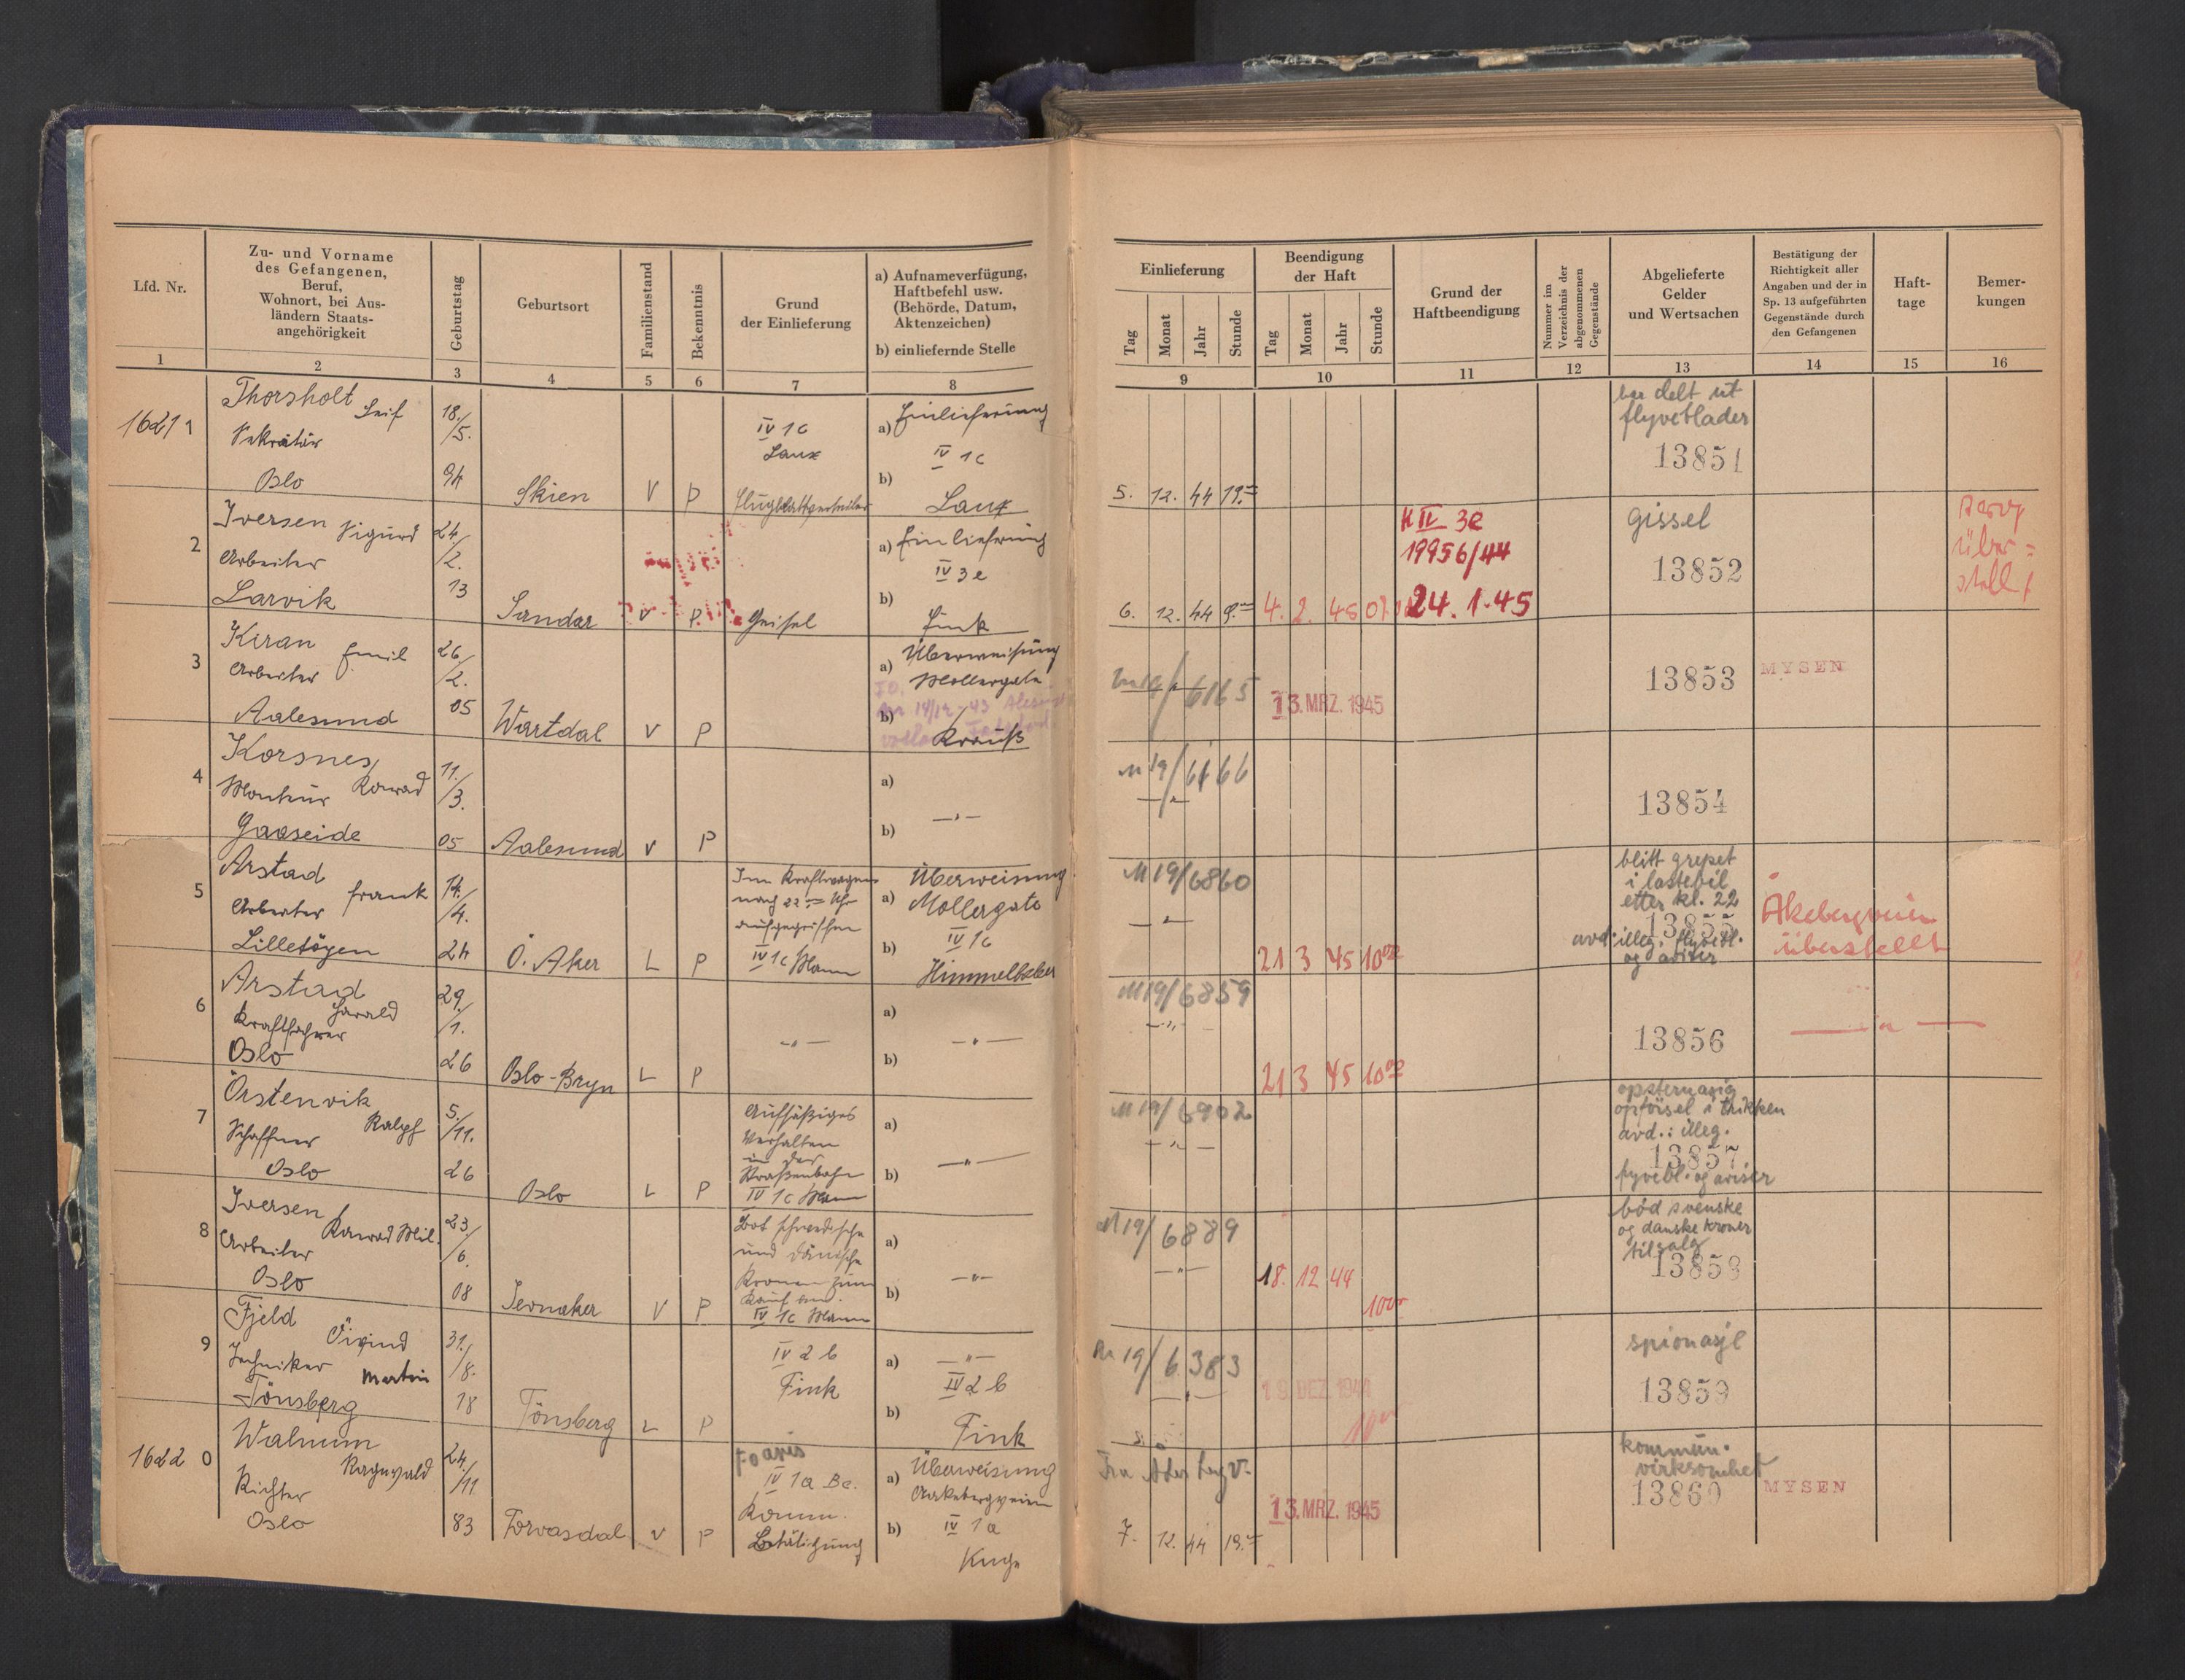 Lfd. Nr.
Zu- und Vorname
des Gefangenen,
Beruf,
Wohnort, bei Aus-
ländern Staats-
angehörigkeit
Geburtstag
Geburtsort
Familienstand
Bekenntnis
Grund
der Einlieferung
a) Aufnameverfügung,
Haftbefehl usw.
(Behörde, Datum,
Aktenzeichen)
b) einliefernde Stelle
Einlieferung
Tag Monat Jahr Stunde
Beendigung
der Haft
Tag Monat Jahr Stunde
Grund der
Haftbeendigung
Nummer im
Verzeichnis der
abgenommenen
Gegenstände
Abgelieferte
Gelder
und Wertsachen
Bestätigung der
Richtigkeit aller
Angaben und der in
Sp. 13 aufgeführten
Gegenstände durch
den Gefangenen
Haft-
tage
Bemer-
kungen
1 2 3 4 5 6 7 8 9 10 11 12 13 14 15 16
1621 1
Thorsholt Leif
Sekretär
Oslo
18./5. 94
Skien V P
IV 1c
a) Einlieferung
IV 1c
b)
5. 12. 44 19.
har delt ut
flyveblader
13851
2
Iversen Sigurd
Arbeiter
Larvik
24./2. 13
Sandar V P. Geisel
a) Einlieferung
IV 3e
b)
Fink
6. 12. 44 9.
4. 2. 45
IV 3e
19956/44
24. 1. 45
gissel
13852
über=
stellt
3
Kiran Emil
Arbeiter
Aalesund
26./2. 05
Wartdal V P
a) Überweisung
Mollergata
b)
Krauß
6165
13. MRZ. 1945
13853
MYSEN
4
Korsnes
Monteur Konrad
Gaaseide
11./3. 05
Aalesund V P
a)
b) — " —
M 19/6166
— " —
13854
5
Arstad
Arbeiter Frank
Lilletögen
14./4. 24
Ö. Aker L P
Im Kraftwagen
nach 22 Uhr
aufgegriffen
IV 1c Mann
Überweisung
a) Mollergata
b) IV 1c
M 19/6860
— " —
21 3 45 10 00
blitt grepet
i lastebil
etter kl. 22
13855
avd. illeg. flyvebl.
og aviser
Åkebergveien
überstellt
6
Arstad
Harald
Kraftfahrer
Oslo
29./1. 26
Oslo-Bryn L P
— " —
a)
— " —
b)
M 19/6859
— " —
21 3 45 10 00
13856
— " —
7
Örstenvik
Schaffner Ralpf
Oslo
5./11. 26
Oslo L P
Aufsäßiges
Verhalten
in der
Straßenbahn
IV 1c Mann
a)
— " —
b)
M 19/6902
— " —
opsternasig
opförsel i trikken
avd.: illeg.
13857
flyvebl. og aviser
8
Iversen
Arbeiter Konrad Mil.
Oslo
23./6. 08
Jevnaker V P
Bot schwedische
und dänische
Kronen zum
Kauf an.
IV 1c Mann
a)
— " —
b)
M 19/6889
— " —
18. 12 44
10 00
böd svenske
og danske kroner
til salg
13858
9
Fjeld
Öivind
Techniker Martin
Tönsberg
31./8. 18
Tönsberg L P
IV 2 b
Fink
a) — " —
IV 2 b
b)
Fink
19/6383
— " —
19. DEZ. 1944
10 00
spionasje
13859
1622 0
Walnum
Ragnvald
Richter
Oslo
24./11 83
Forvasdal V P
IV 1a
Komm.
Betätigung
Überweisung
a)
b) IV 1a
Fra
7. 12. 44 19.
13. MRZ. 1945
kommun.
virksomhet
13860
MYSEN